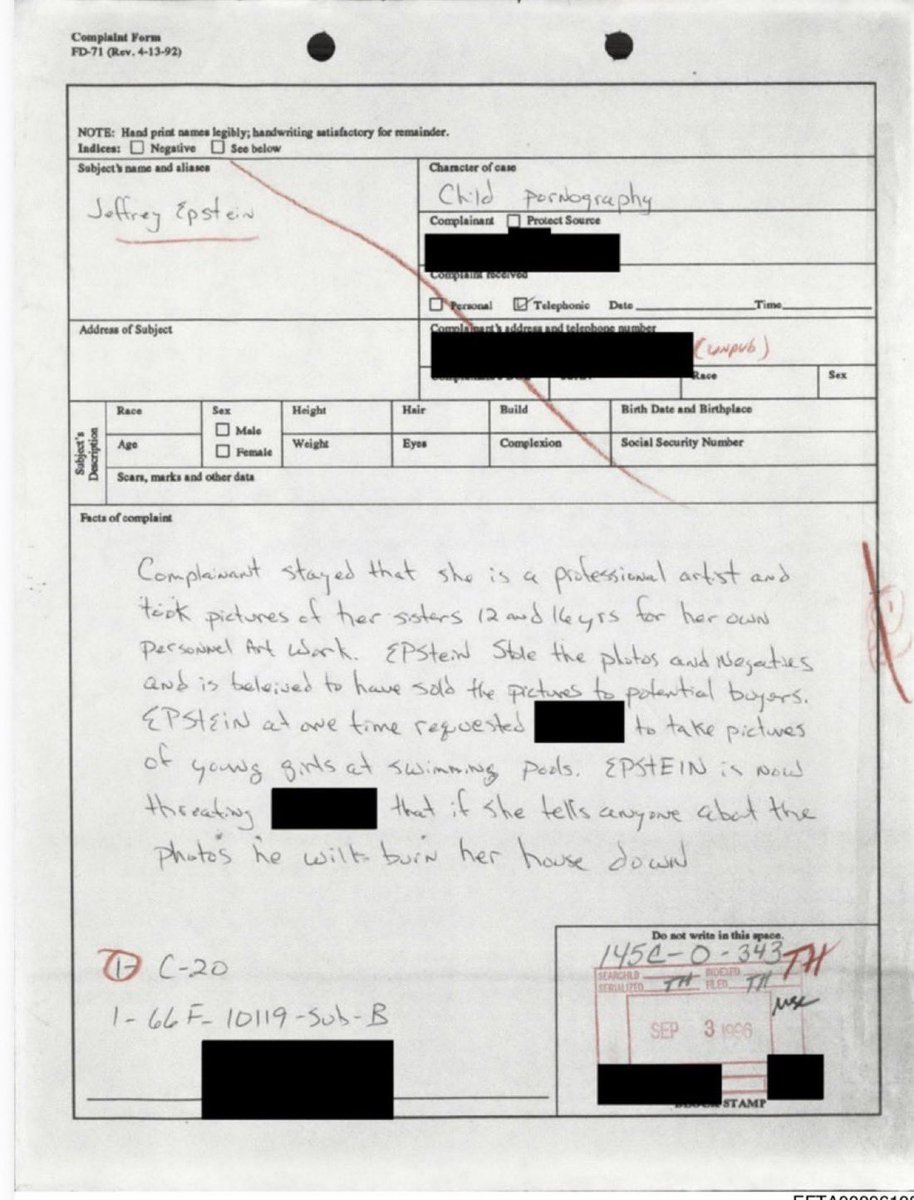 Complaint Form
FD-71 (Rev. 4-13-92)
NOTE: Hand print names legibly; handwriting satisfactory for remainder.
Indices: Negative See below
Subject's name and aliases
Jeffrey Epstein
Character of case
Child pornography
Complainant Protect Source
Complaint received
Personal Telephonic Date Time
Address of Subject
Complainant's address and telephone number
(unpub)
Race
Sex
Subject's Description
Race
Sex
Male
Female
Height
Hair
Build
Birth Date and Birthplace
Age
Weight
Eyes
Complexion
Social Security Number
Scars, marks and other data
Facts of complaint
Complainant stayed that she is a professional artist and
took pictures of her sisters 12 and 16 yrs for her own
personnel Art Work. EPStein Stole the photos and Negatives
and is beleived to have sold the pictures to potential buyers.
EPSTEIN at one time requested to take pictures
of young girls at swimming pools. EPSTEIN is now
threating that if she tells anyone abot the
photos he will burn her house down
1- C-20
1- 66F-10119-Sub-B
Do not write in this space.
145C-0-343 TH
SEARCHED INDEXED
SERIALIZED TH FILED TH
SEP 3 1996
STAMP